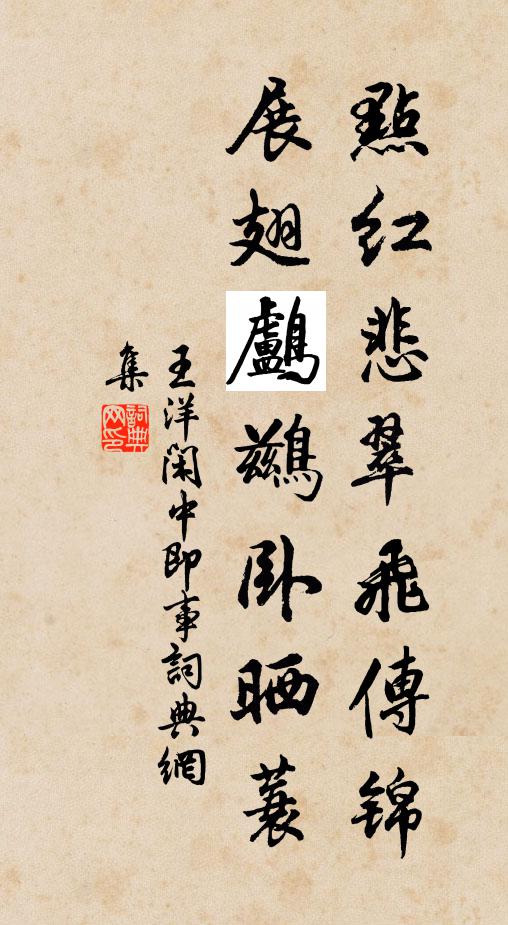 點红悲翠飛傳錦
展翅鸕鷀卧晒蓑
王洋閑中即事詞典網
集
詞典网印